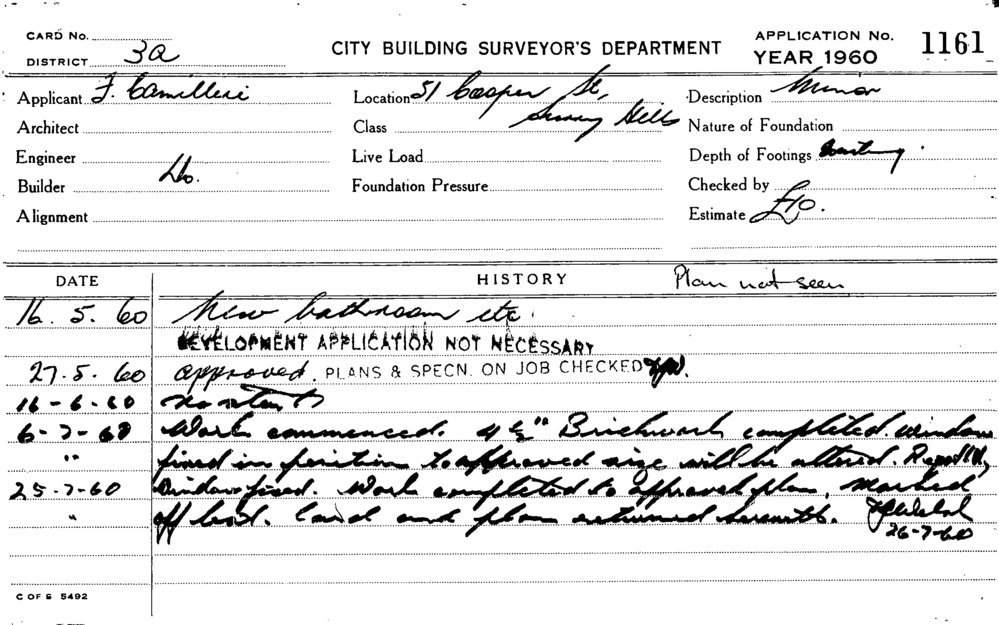 CARD No.
DISTRICT 3a
CITY BUILDING SURVEYOR'S DEPARTMENT
APPLICATION No. 1161
YEAR 1960
Applicant F. Camilleri
Architect
Engineer
Builder Do.
Alignment
Location 51 Cooper St,
Surry Hills
Class
Live Load
Foundation Pressure
Description Minor
Nature of Foundation
Depth of Footings
Checked by
Estimate £70.
DATE
HISTORY Plan not seen
16. 5. 60 New bathroom etc.
DEVELOPMENT APPLICATION NOT NECESSARY
27. 5. 60 approved. PLANS & SPECN. ON JOB CHECKED
16-6-60 No start
6-7-60 Work commenced. 4½" Brickwork completed. window
" fixed in position to approved size will be altered.
25-7-60 Window fixed. Work completed to approved plan. Marked
" off bord. Card and plan returned herewith.
26-7-60
C OF S 5492